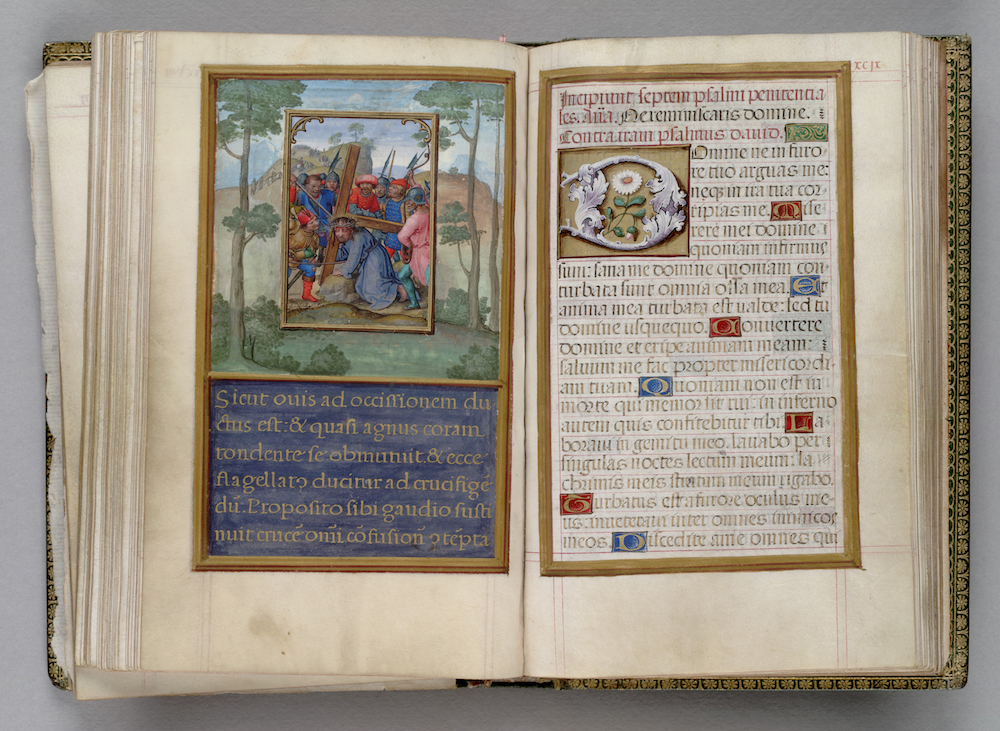 Sicut ouis ad occisionem du
ctus est: & quasi agnus coram
tondente se obmutuit. & ecce
flagellatꝰ ducitur ad crucifige
dū. Proposito sibi gaudio susti
nuit crucē om̄i cōfusiōn ꝯtēpta
xcix
Incipiunt septem psalmi penitentia
les. Aña. Ne reminiscaris domine.
Contra iram psalmus dauid.
Domine ne in furo
re tuo arguas me:
neqꝫ in ira tua cor
ripias me. Mise
rere mei domine
quoniam infirmus
sum: sana me domine quoniam con
turbata sunt omnia ossa mea. Et
anima mea turbata est valde: sed tu
domine usquequo. Conuertere
domine et eripe animam meam:
saluum me fac propter misericordi
am tuam. Quoniam non est in
morte qui memor sit tui: in inferno
autem quis confitebitur tibi. La
boraui in gemitu meo. lauabo per
singulas noctes lectum meum: la
chrimis meis stratum meum rigabo.
Turbatus est a furore oculus me
us: inueteraui inter omnes inimicos
meos. Discedite a me omnes qui